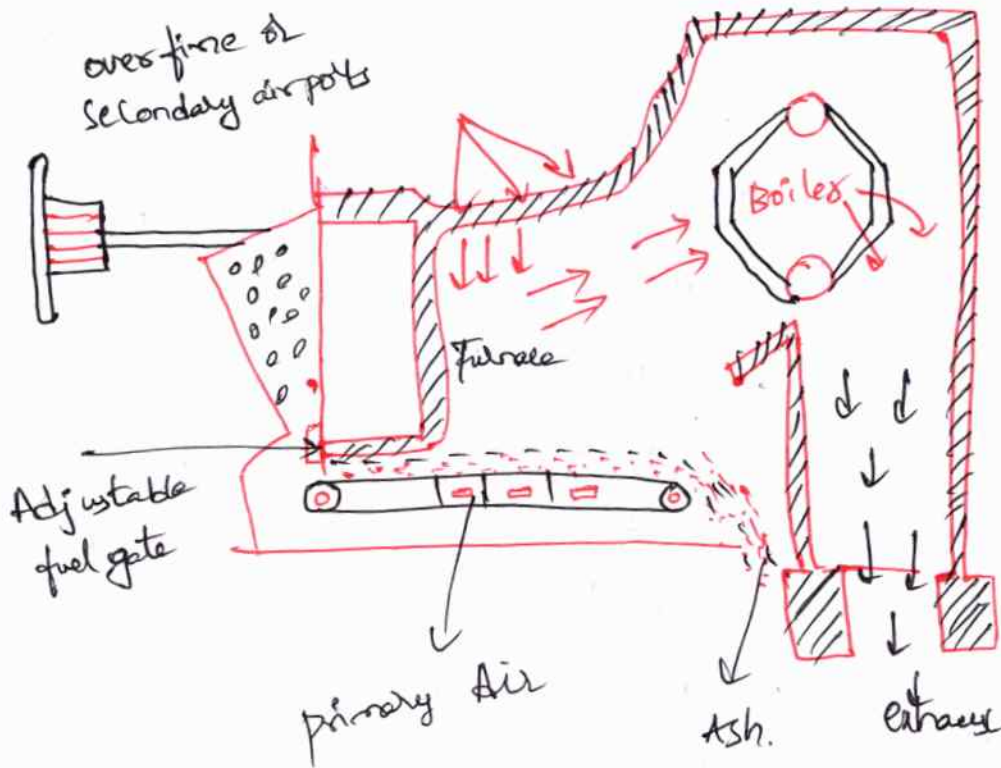 over fire or
secondary airports
Boiler
Furnace
Adjustable
fuel gate
primary Air
Ash.
exhaust